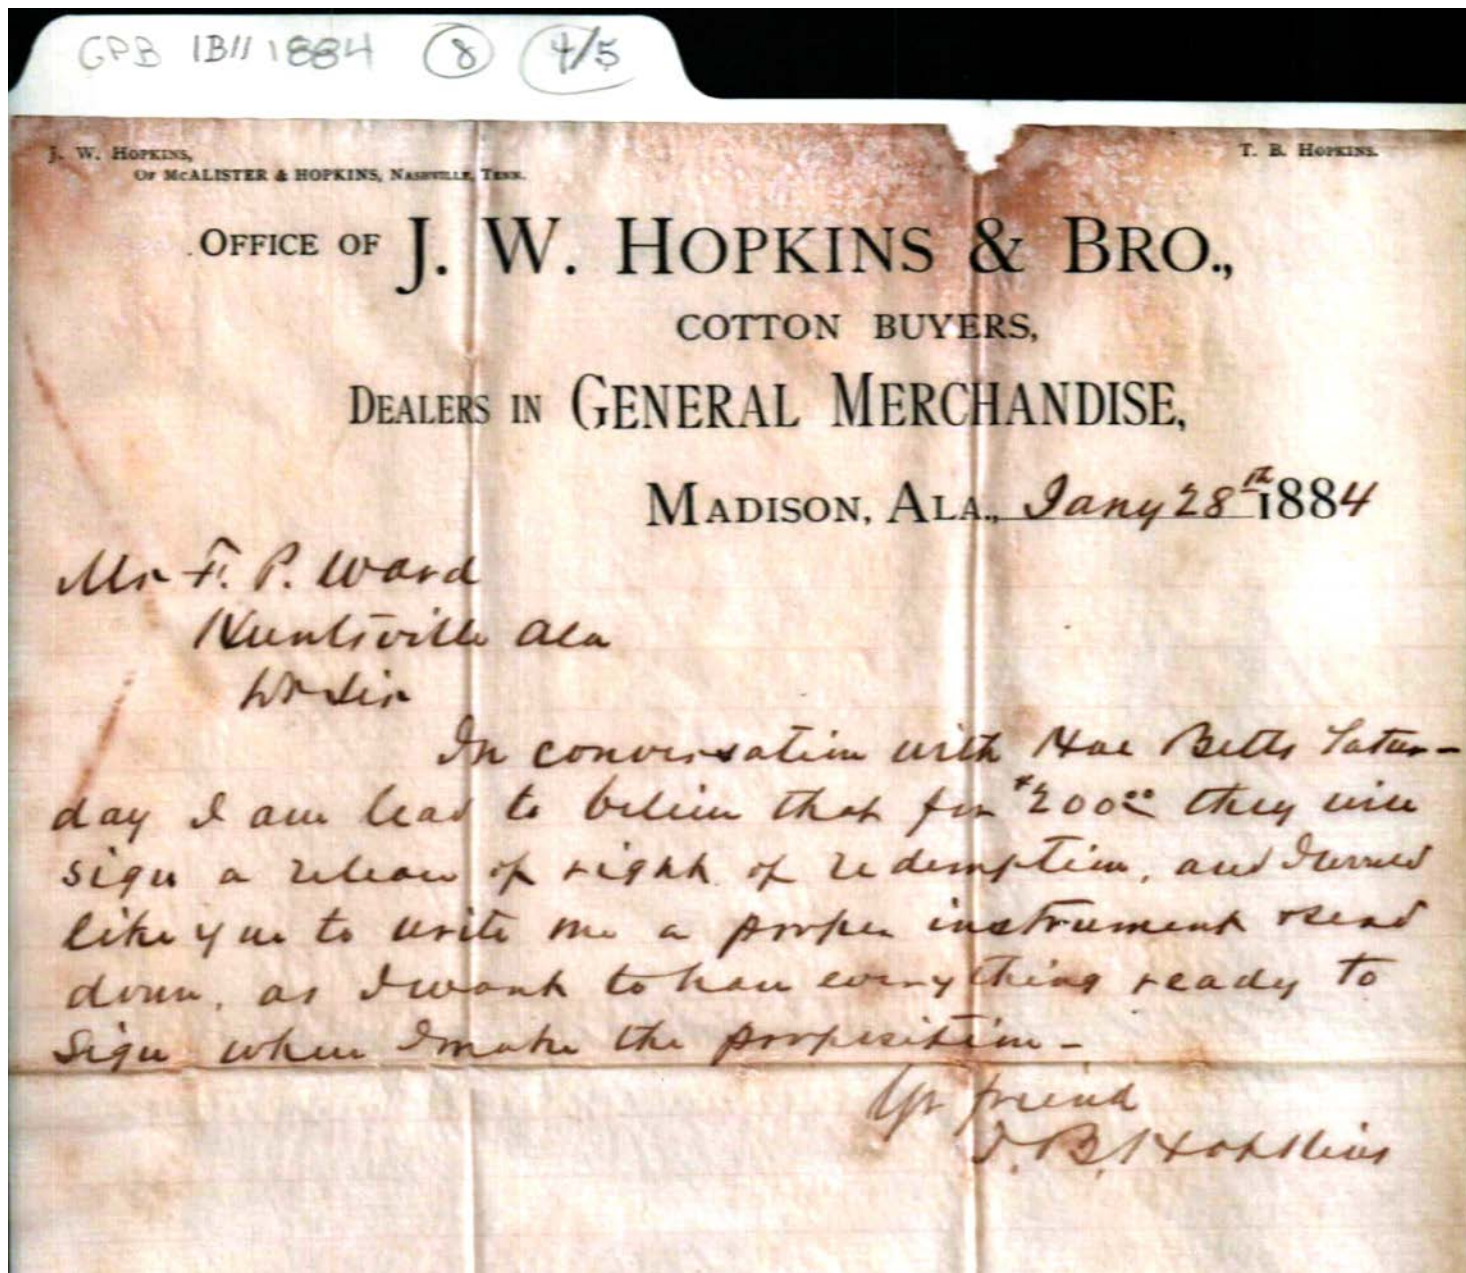 GPB 1B11 1884 8 4/5
J. W. HOPKINS,
OF MCALISTER & HOPKINS, NASHVILLE, TENN.
T. B. HOPKINS.
OFFICE OF J. W. HOPKINS & BRO.,
COTTON BUYERS,
DEALERS IN GENERAL MERCHANDISE,
MADISON, ALA., Jany 28th 1884
Mr F. P. Ward
Huntsville Ala
Dr Sir
In conversation with Betts Satur-
day I am lead to believe that for $200.00 they will
sign a release of right of redemption, and I would
like you to write me a proper instrument & send
down, as I want to have everything ready to
sign when I make the proposition -
Yr friend
T. B. Hopkins